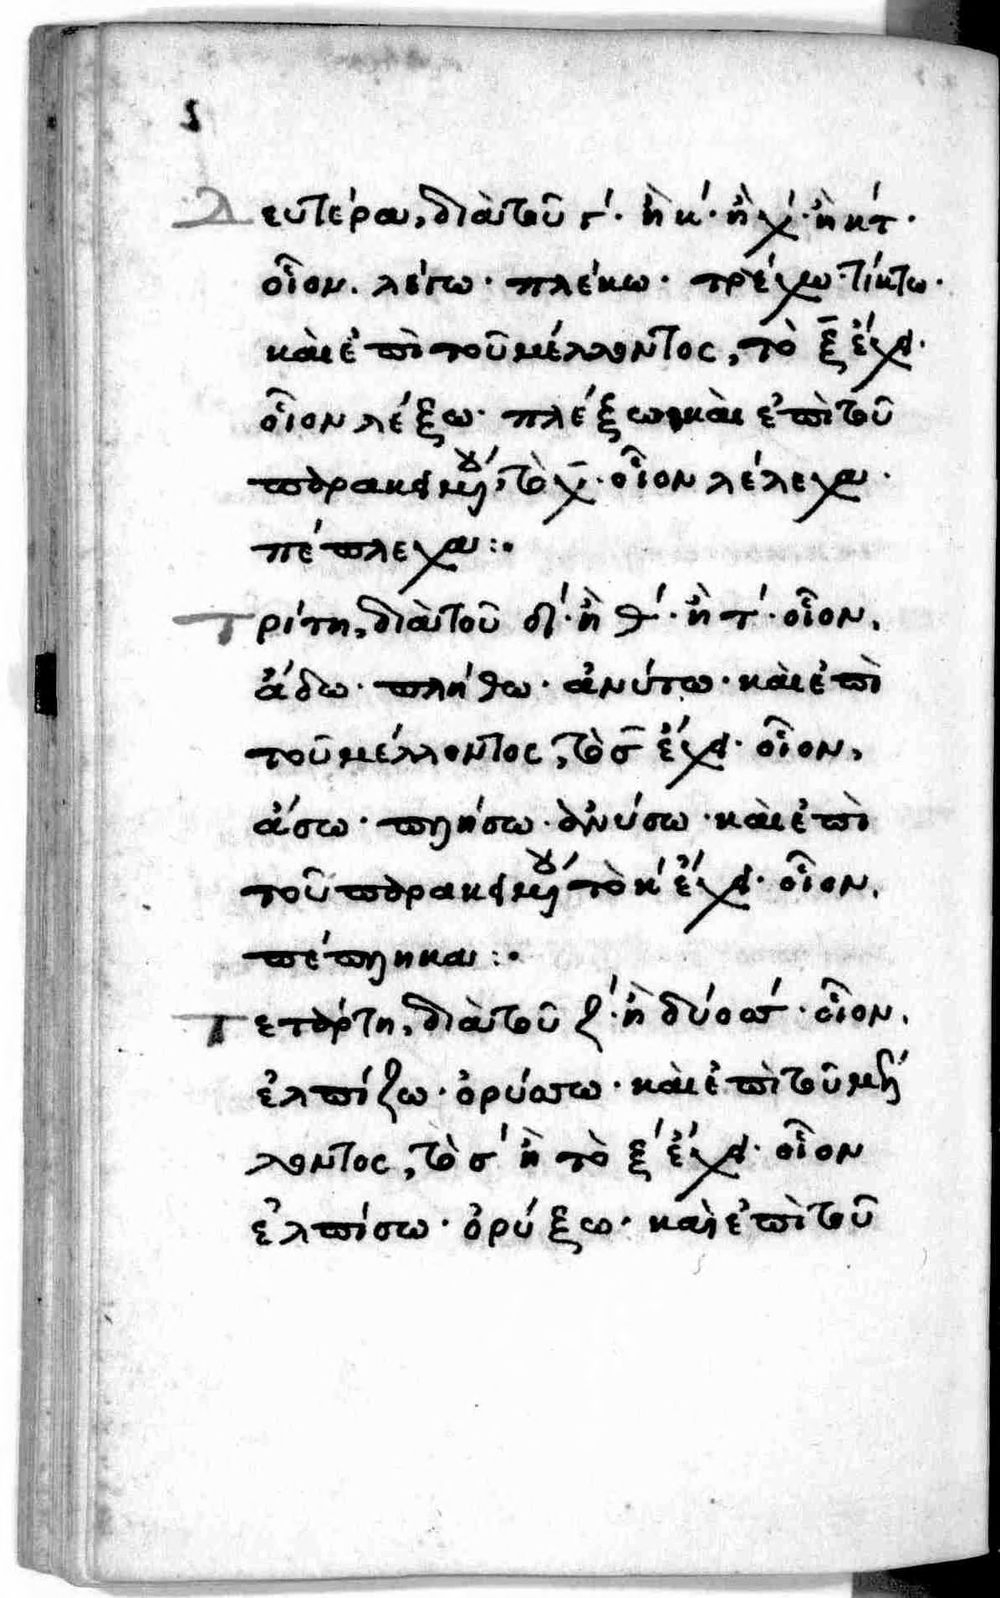 Δευτέρα, διὰ τοῦ γ΄· ἢ κ΄· ἢ χ΄· ἢ κτ΄·
οἷον. λέγω· πλέκω· τρέχω· τίκτω·
καὶ ἐπὶ τοῦ μέλλοντος, τὸ ξ̄ ἔχει·
οἷον λέξω· πλέξω, καὶ ἐπὶ τοῦ
παρακειμένου, τὸ χ̄· οἷον λέλεχα·
πέπλεχα :·
Τρίτη, διὰ τοῦ δ΄· ἢ θ΄· ἢ τ΄· οἷον,
ἄδω· πλήθω· ἀνύτω· καὶ ἐπὶ
τοῦ μέλλοντος, τὸ σ̄ ἔχει· οἷον,
ἄσω· πλήσω· ἀνύσω· καὶ ἐπὶ
τοῦ παρακειμένου τὸ κ΄ ἔχει· οἷον,
πέπληκα :·
Τετάρτη, διὰ τοῦ ζ΄· ἢ δύο σσ΄· οἷον,
ἐλπίζω· ὀρύσσω· καὶ ἐπὶ τοῦ μέλ
λοντος, τὸ σ΄ ἢ τὸ ξ΄ ἔχει· οἷον
ἐλπίσω· ὀρύξω· καὶ ἐπὶ τοῦ